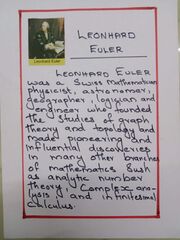 LEONHARD
EULER
Leonhard Euler
LEONHARD EULER
was a Swiss mathematician
physicist, astronomer,
geographer, logician and
engineer who founded
the studies of graph
theory and topology and
made pioneering and
influential discoveries
in many other branches
of mathematics such
as analytic number
theory, complex ana-
lysis and infinitesimal
calculus.